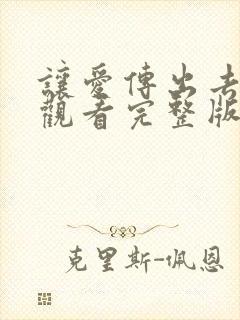 讓愛傳出去
觀看完整版
克里斯-佩恩